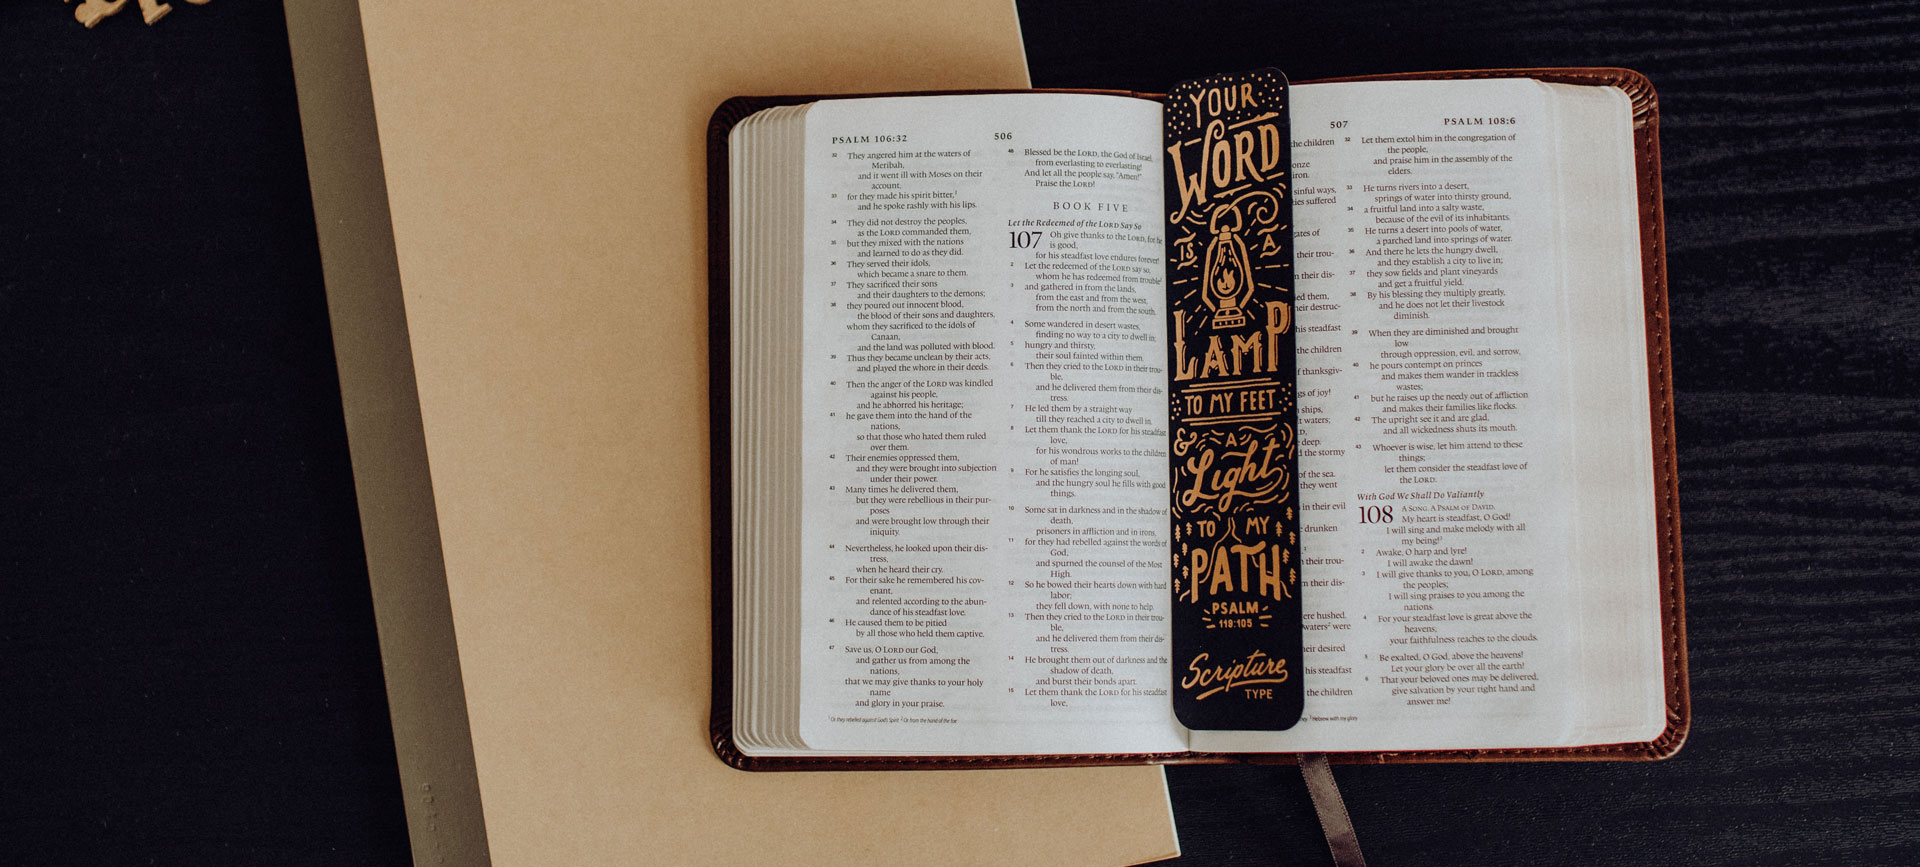 PSALM 106:32
506
32 They angered him at the waters of
Meribah,
and it went ill with Moses on their
account,
33 for they made his spirit bitter,1
and he spoke rashly with his lips.
34 They did not destroy the peoples,
as the LORD commanded them,
35 but they mixed with the nations
and learned to do as they did.
36 They served their idols,
which became a snare to them.
37 They sacrificed their sons
and their daughters to the demons;
38 they poured out innocent blood,
the blood of their sons and daughters,
whom they sacrificed to the idols of
Canaan,
and the land was polluted with blood.
39 Thus they became unclean by their acts,
and played the whore in their deeds.
40 Then the anger of the LORD was kindled
against his people,
and he abhorred his heritage;
41 he gave them into the hand of the
nations,
so that those who hated them ruled
over them.
42 Their enemies oppressed them,
and they were brought into subjection
under their power.
43 Many times he delivered them,
but they were rebellious in their pur-
poses
and were brought low through their
iniquity.
44 Nevertheless, he looked upon their dis-
tress,
when he heard their cry.
45 For their sake he remembered his cov-
enant,
and relented according to the abun-
dance of his steadfast love.
46 He caused them to be pitied
by all those who held them captive.
47 Save us, O LORD our God,
and gather us from among the
nations,
that we may give thanks to your holy
name
and glory in your praise.
1 Or they rebelled against God's Spirit 2 Or from the hand of the foe
48 Blessed be the LORD, the God of Israel,
from everlasting to everlasting!
And let all the people say, "Amen!"
Praise the LORD!
BOOK FIVE
Let the Redeemed of the LORD Say So
107 Oh give thanks to the LORD, for he
is good,
for his steadfast love endures forever!
2 Let the redeemed of the LORD say so,
whom he has redeemed from trouble
3 and gathered in from the lands,
from the east and from the west,
from the north and from the south.
4 Some wandered in desert wastes,
finding no way to a city to dwell in;
5 hungry and thirsty,
their soul fainted within them.
6 Then they cried to the LORD in their trou-
ble,
and he delivered them from their dis-
tress.
7 He led them by a straight way
till they reached a city to dwell in.
8 Let them thank the LORD for his steadfast
love,
for his wondrous works to the children
of man!
9 For he satisfies the longing soul,
and the hungry soul he fills with good
things.
10 Some sat in darkness and in the shadow of
death,
prisoners in affliction and in irons,
11 for they had rebelled against the words of
God,
and spurned the counsel of the Most
High.
12 So he bowed their hearts down with hard
labor;
they fell down, with none to help.
13 Then they cried to the LORD in their trou-
ble,
and he delivered them from their dis-
tress.
14 He brought them out of darkness and the
shadow of death,
and burst their bonds apart.
15 Let them thank the LORD for his steadfast
love,
YOUR
WORD
IS A
LAMP
TO MY FEET
& A
Light
TO MY
PATH
PSALM
119:105
Scripture
TYPE
507
PSALM 108:6
the children
iron.
sinful ways,
suffered
of
their trou-
their dis-
them,
destruc-
his steadfast
the children
thanksgiv-
of joy!
ships,
waters;
deep.
the stormy
of the sea.
they went
in their evil
drunken
their trou-
their dis-
were hushed.
waters2 were
desired
his steadfast
the children
2 Hebrew with my glory
32 Let them extol him in the congregation of
the people,
and praise him in the assembly of the
elders.
33 He turns rivers into a desert,
springs of water into thirsty ground,
34 a fruitful land into a salty waste,
because of the evil of its inhabitants.
35 He turns a desert into pools of water,
a parched land into springs of water.
36 And there he lets the hungry dwell,
and they establish a city to live in;
37 they sow fields and plant vineyards
and get a fruitful yield.
38 By his blessing they multiply greatly,
and he does not let their livestock
diminish.
39 When they are diminished and brought
low
through oppression, evil, and sorrow,
40 he pours contempt on princes
and makes them wander in trackless
wastes;
41 but he raises up the needy out of affliction
and makes their families like flocks.
42 The upright see it and are glad,
and all wickedness shuts its mouth.
43 Whoever is wise, let him attend to these
things;
let them consider the steadfast love of
the LORD.
With God We Shall Do Valiantly
108 A SONG. A PSALM OF DAVID.
My heart is steadfast, O God!
I will sing and make melody with all
my being!2
2 Awake, O harp and lyre!
I will awake the dawn!
3 I will give thanks to you, O LORD, among
the peoples;
I will sing praises to you among the
nations.
4 For your steadfast love is great above the
heavens;
your faithfulness reaches to the clouds.
5 Be exalted, O God, above the heavens!
Let your glory be over all the earth!
6 That your beloved ones may be delivered,
give salvation by your right hand and
answer me!